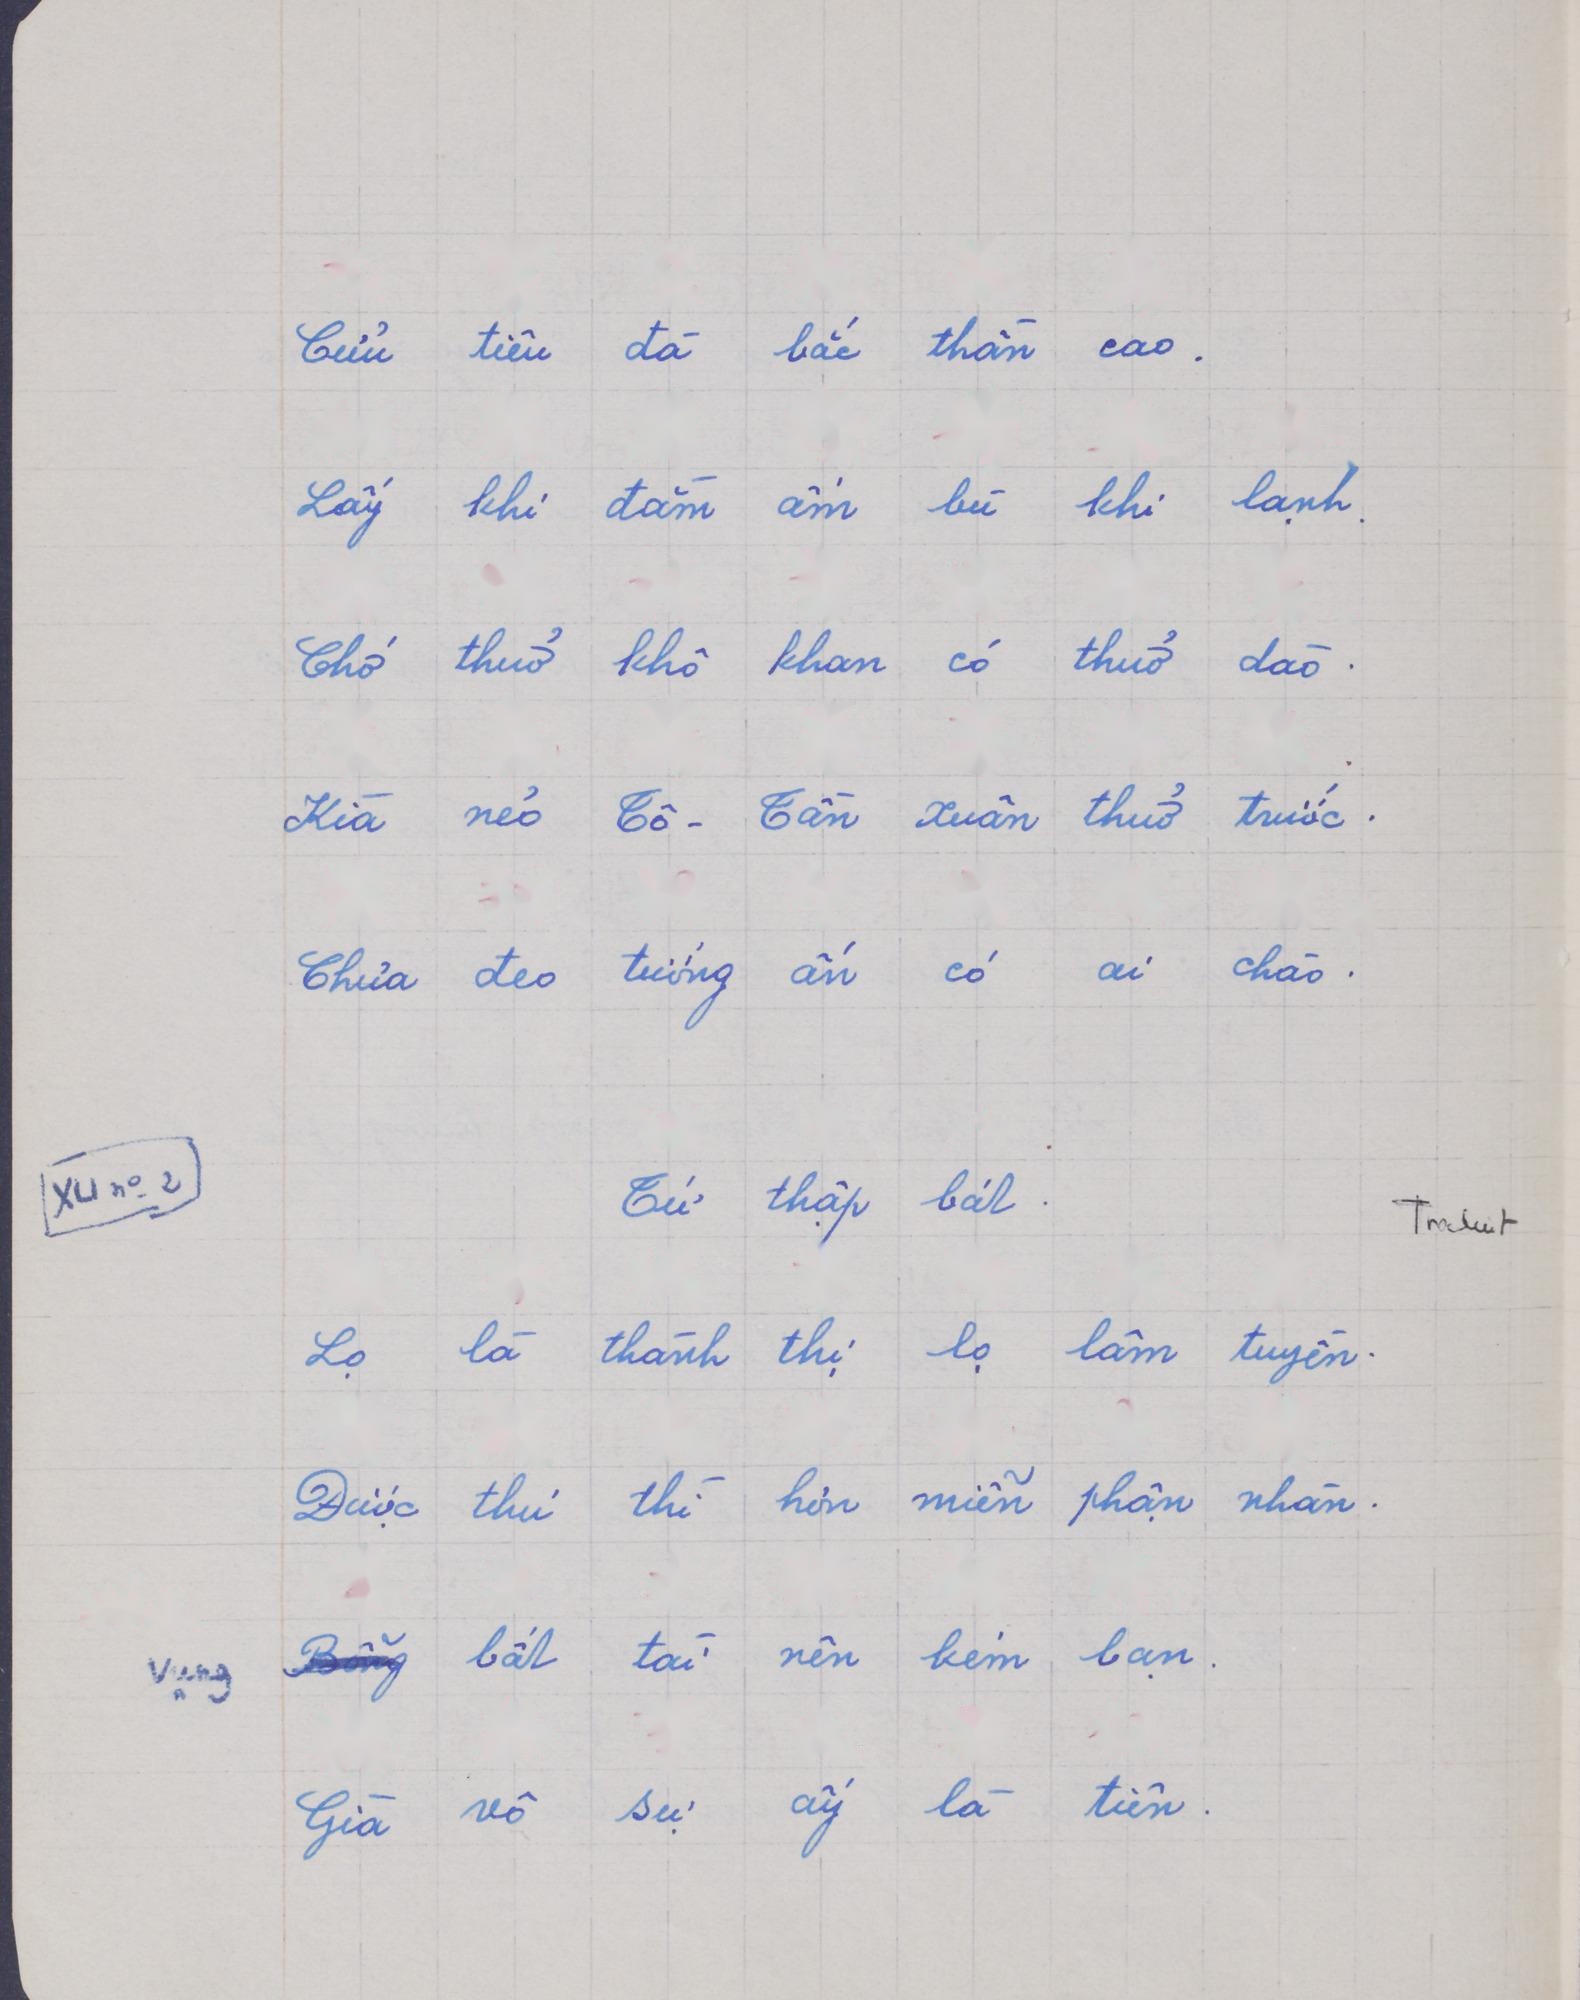 Cửu tiêu đã bắc thần cao.
Lấy khi đầm ấm bù khi lạnh.
Chớ thuở khô khan có thuở dào.
Kìa nẻo Tô-Tần xuân thuở trước.
Chưa đeo tướng ấn có ai chào.
XLI nº 2 Tứ thập bát. Traduit
Lọ là thành thị lọ lâm tuyền.
Được thú thì hơn miễn phận nhàn.
Vụng Bỗng bất tài nên kém bạn.
Già vô sự ấy là tiên.